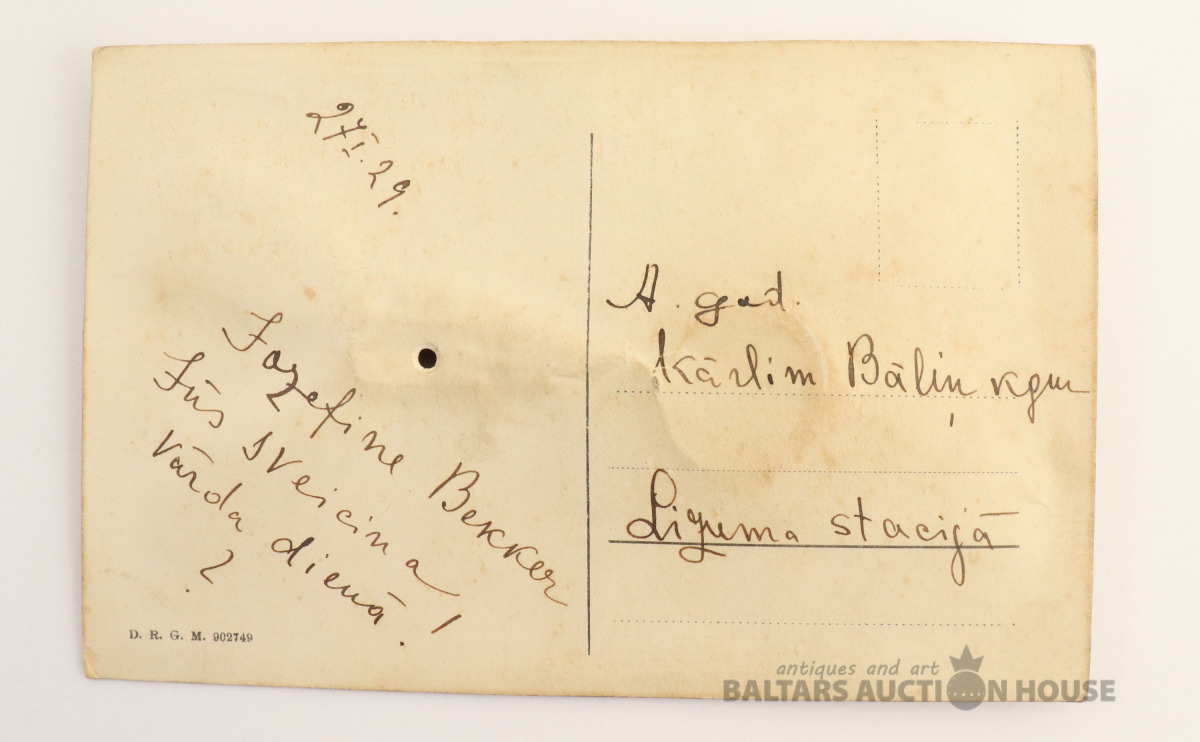 27 I. 29.
Jozefine Bekker
Jūs sveicina
vārda dienā.!
2
D. R. G. M. 902749
A. god.
Kārlim Bāliņ kgm
Liguma stacijā
antiques and art
BALTARS AUCTION HOUSE